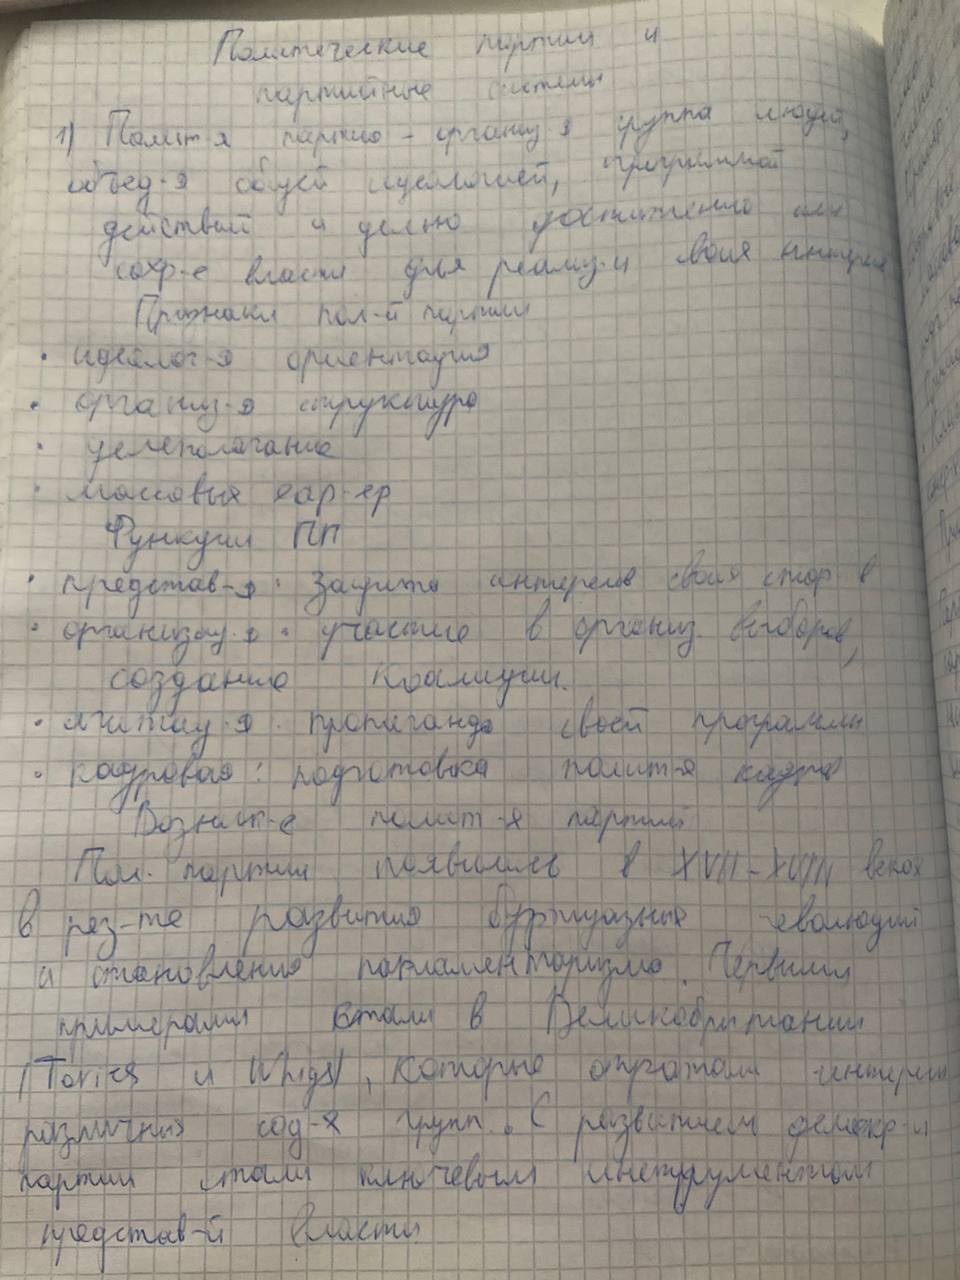 Политические партии и
партийные системы
1) Полит-я партию - организ-я группа людей,
объед-я общей идеологией, программой
действий и целью достижению или
сохр-е власти для реализ-и своих интерес
Признаки пол-й партии
• идеолог-я ориентация
• организ-я структура
• целеполагание
• массовый хар-ер
Функции ПП
• представ-я: Защита интересов своих стор-в
• организац-я: участие в организ. выборов,
создание коалиции.
• агитац-я: пропаганда своей программы
• кадровая: подготовка полит-х кадров
Возник-е полит-х партий
Пол. партии появились в XVII-XVIII веках
в рез-те развития буржуазных революций
и становления парламентаризма. Первыми
примерами стали в Великобритании
(Tories и Whigs), которые отражали интересы
различных соц-х групп. С развитием демокр-и
партии стали ключевым инструментом
представ-й власти